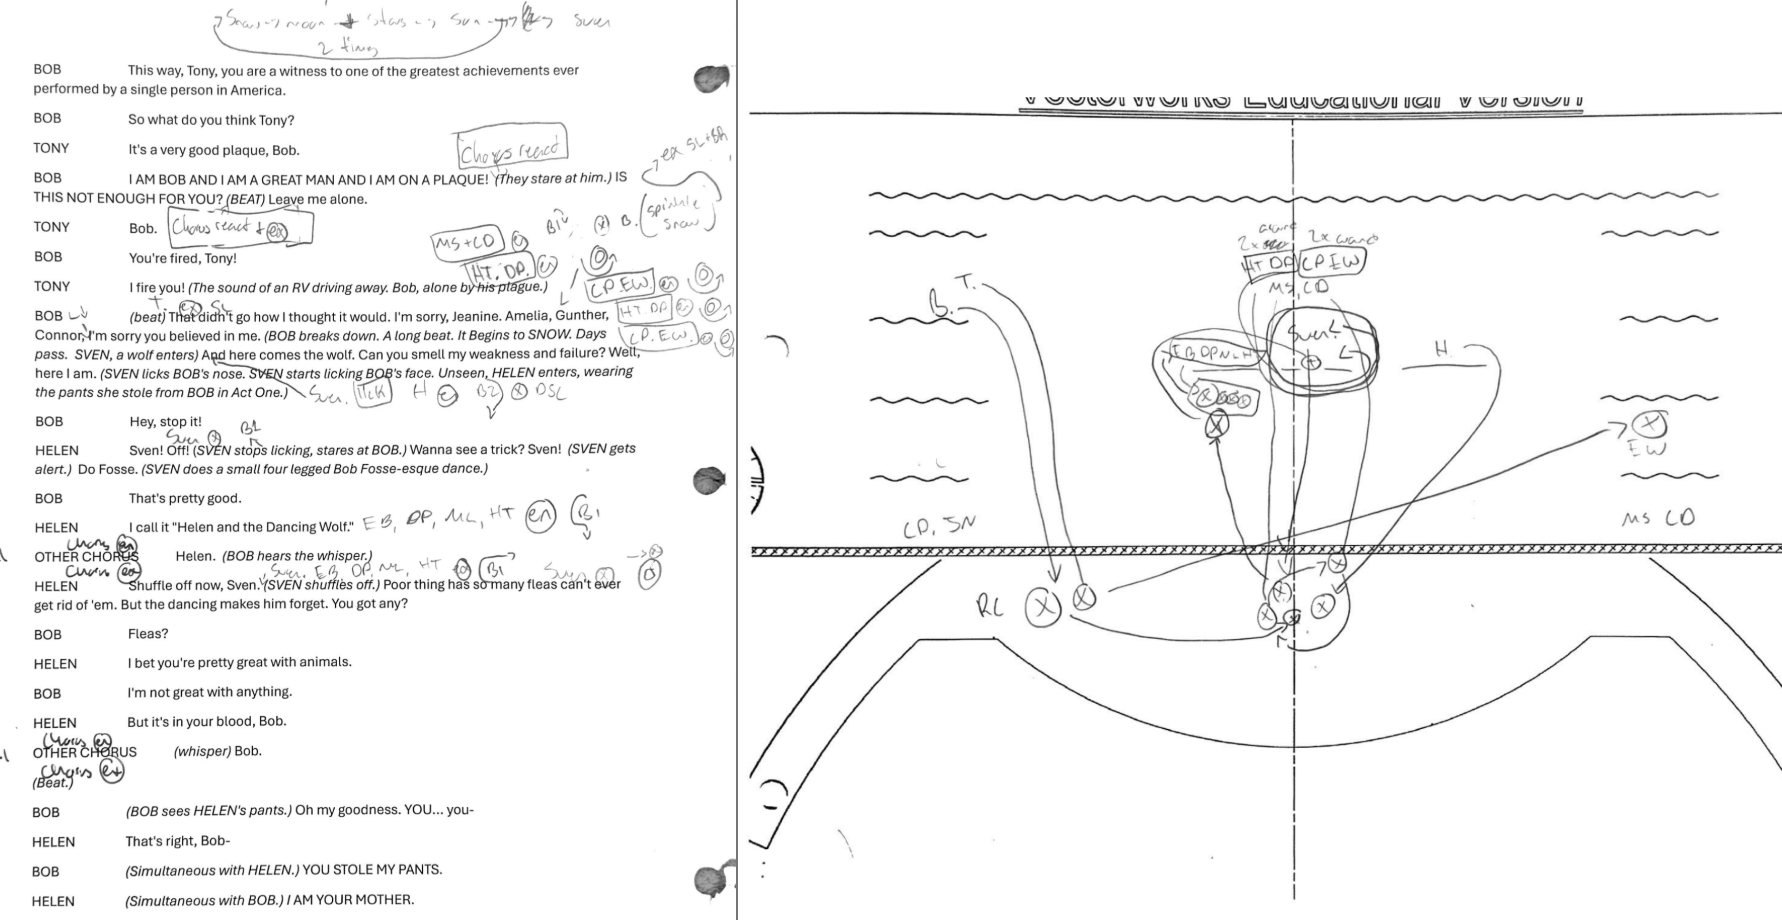 Snow -> moon -> stars -> sun -> sven
2 times
BOB This way, Tony, you are a witness to one of the greatest achievements ever
performed by a single person in America.
BOB So what do you think Tony?
TONY It's a very good plaque, Bob.
Chorus react
ex SL+SR
BOB I AM BOB AND I AM A GREAT MAN AND I AM ON A PLAQUE! (They stare at him.) IS
THIS NOT ENOUGH FOR YOU? (BEAT) Leave me alone.
TONY Bob. Chorus react + ex
B. (sprinkle snow)
MS+CD en
BOB You're fired, Tony!
HT. DP. en
TONY I fire you! (The sound of an RV driving away. Bob, alone by his plague.)
CP EW. en
T. ex SL
BOB (beat) That didn't go how I thought it would. I'm sorry, Jeanine. Amelia, Gunther,
HT DP en
Connor, I'm sorry you believed in me. (BOB breaks down. A long beat. It Begins to SNOW. Days
CP. EW.
pass. SVEN, a wolf enters) And here comes the wolf. Can you smell my weakness and failure? Well,
here I am. (SVEN licks BOB's nose. SVEN starts licking BOB's face. Unseen, HELEN enters, wearing
the pants she stole from BOB in Act One.) Sven. lick H en B2 X DSC
BOB Hey, stop it!
Sven X B1
HELEN Sven! Off! (SVEN stops licking, stares at BOB.) Wanna see a trick? Sven! (SVEN gets
alert.) Do Fosse. (SVEN does a small four legged Bob Fosse-esque dance.)
BOB That's pretty good.
HELEN I call it "Helen and the Dancing Wolf." EB, DP, NL, HT en B1
Chorus en
OTHER CHORUS Helen. (BOB hears the whisper.)
Chorus ex
Sven. EB, DP, NL, HT ex B1 Sven X
HELEN Shuffle off now, Sven. (SVEN shuffles off.) Poor thing has so many fleas can't ever
get rid of 'em. But the dancing makes him forget. You got any?
BOB Fleas?
HELEN I bet you're pretty great with animals.
BOB I'm not great with anything.
HELEN But it's in your blood, Bob.
Chorus en
OTHER CHORUS (whisper) Bob.
Chorus ex
(Beat.)
BOB (BOB sees HELEN's pants.) Oh my goodness. YOU... you-
HELEN That's right, Bob-
BOB (Simultaneous with HELEN.) YOU STOLE MY PANTS.
HELEN (Simultaneous with BOB.) I AM YOUR MOTHER.
Vectorworks Educational Version
2x 2x
HT DP CP EW
MS, CD
T.
B.
Sven
EB DP NL H
H.
EW
CP, SN
MS CD
RC